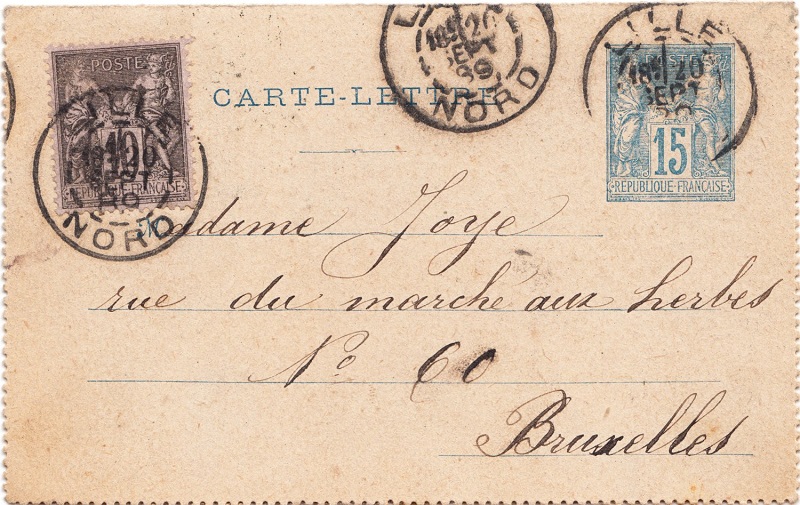 POSTE
10
RÉPUBLIQUE FRANÇAISE
LILLE
20
SEPT
89
NORD
CARTE-LETTRE
20
SEPT
89
NORD
LILLE
20
SEPT
15
REPUBLIQUE-FRANÇAISE
Madame Joye
rue du marche aux herbes
No 60
Bruxelles